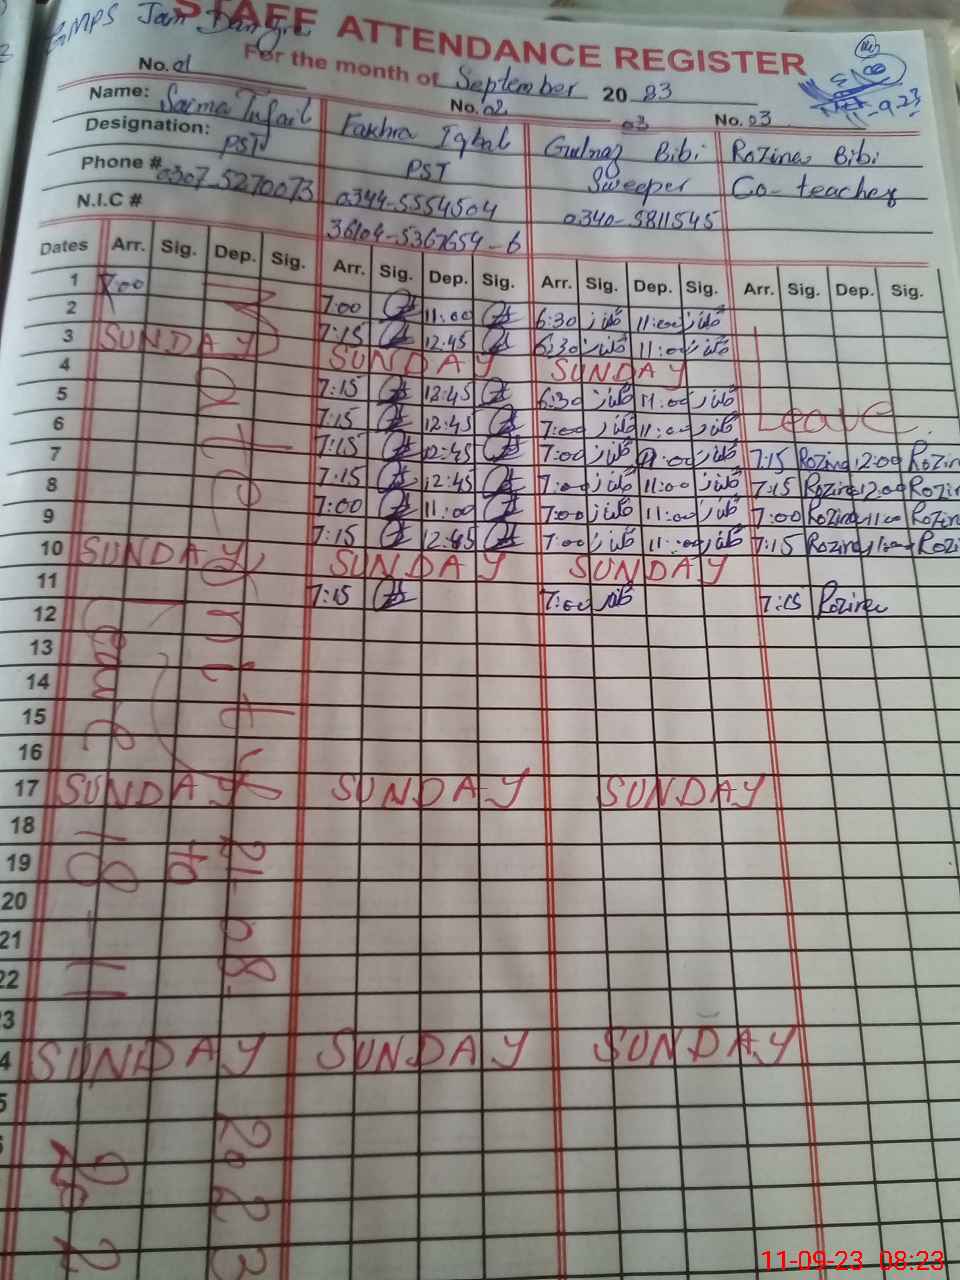 GMPS Jam
STAFF ATTENDANCE REGISTER
For the month of September 2023
No. 01 No. 02 03 No. 03
Name: Saima Tufail Fakhra Iqbal Gulnaz Bibi Rozina Bibi
Designation: PST PST Sweeper Co-teacher
Phone # 0307-5270073 0344-5554504 0340-5811545
N.I.C # 36104-5367654-6
Dates Arr. Sig. Dep. Sig. Arr. Sig. Dep. Sig. Arr. Sig. Dep. Sig. Arr. Sig. Dep. Sig.
1 7:00 7:00 11:00 6:30 گلناز 11:00 گلناز
2 7:15 12:45 6:30 گلناز 11:00 گلناز
3 SUNDAY SUNDAY SUNDAY
4 7:15 12:45 6:30 گلناز 11:00 گلناز
5 7:15 12:45 7:00 گلناز 11:00 گلناز Leave
6 7:15 12:45 7:00 گلناز 11:00 گلناز 7:15 Rozina 12:00 Rozin
7 7:15 12:45 7:00 گلناز 11:00 گلناز 7:15 Rozina 12:00 Rozin
8 7:00 11:00 7:00 گلناز 11:00 گلناز 7:00 Rozina 11:00 Rozin
9 7:15 12:45 7:00 گلناز 11:00 گلناز 7:15 Rozina Rozi
10 SUNDAY SUNDAY SUNDAY
11 7:15 7:00 گلناز 7:15 Rozina
12
13
14
15
16
17 SUNDAY SUNDAY SUNDAY
18
19
20
21
22
3
4 SUNDAY SUNDAY SUNDAY
5
6
Maternity
Leave
21-08-2023
to
18-11-202
11-09-23 08:23